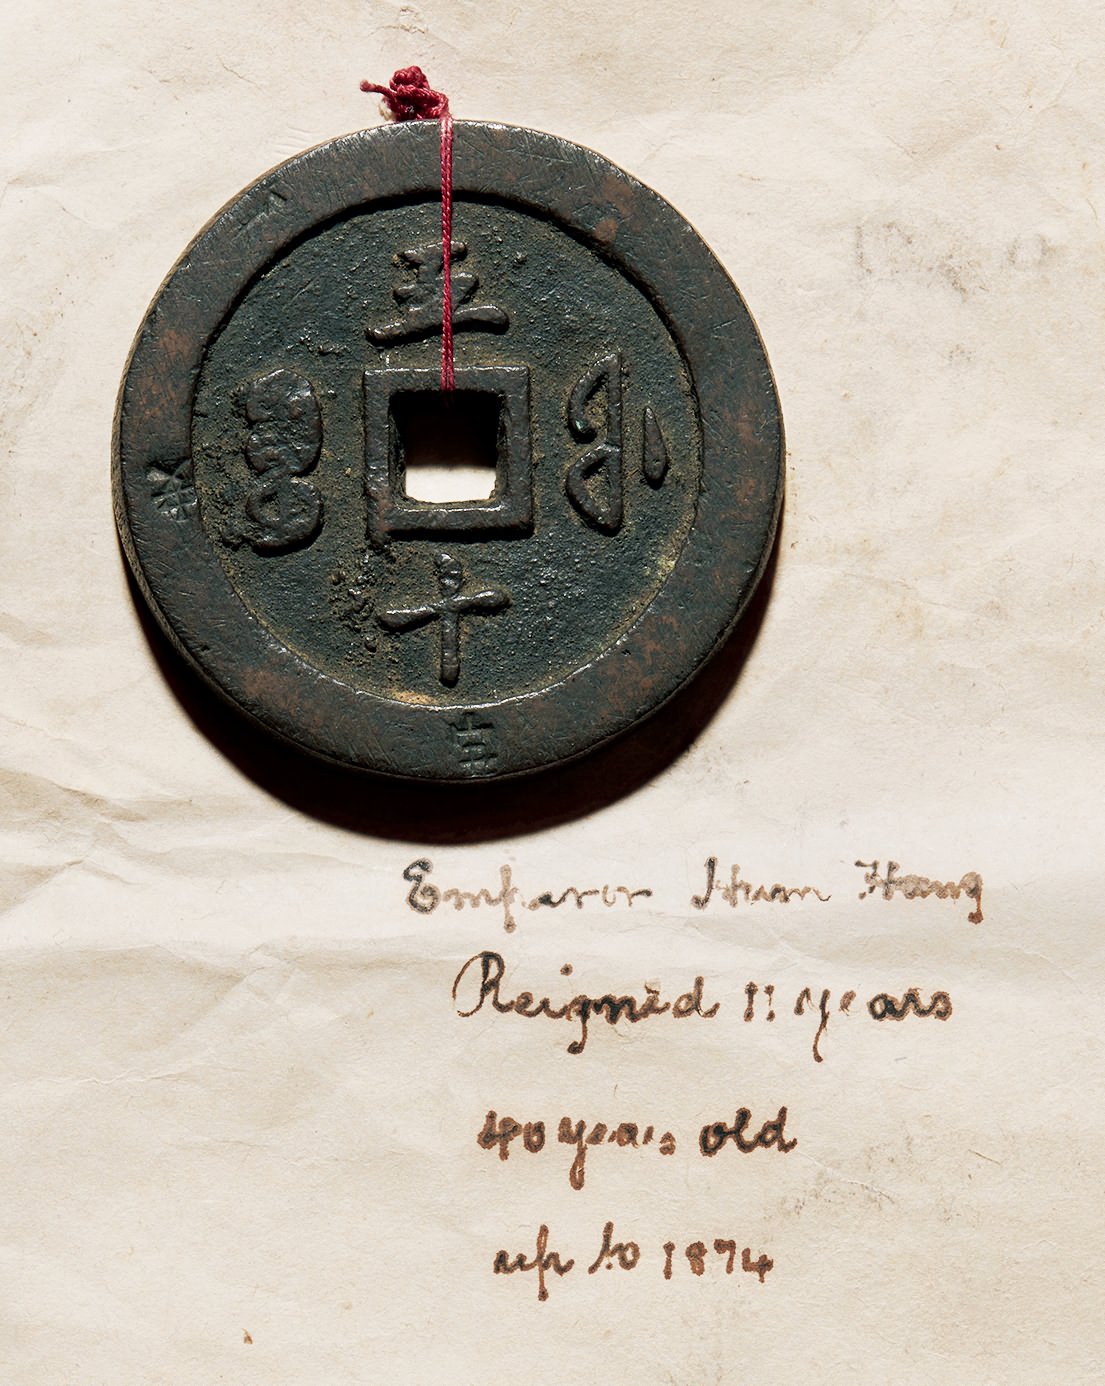 五
十
Emperor Hum Hong
Reigned 11 years
40 years old
up to 1874